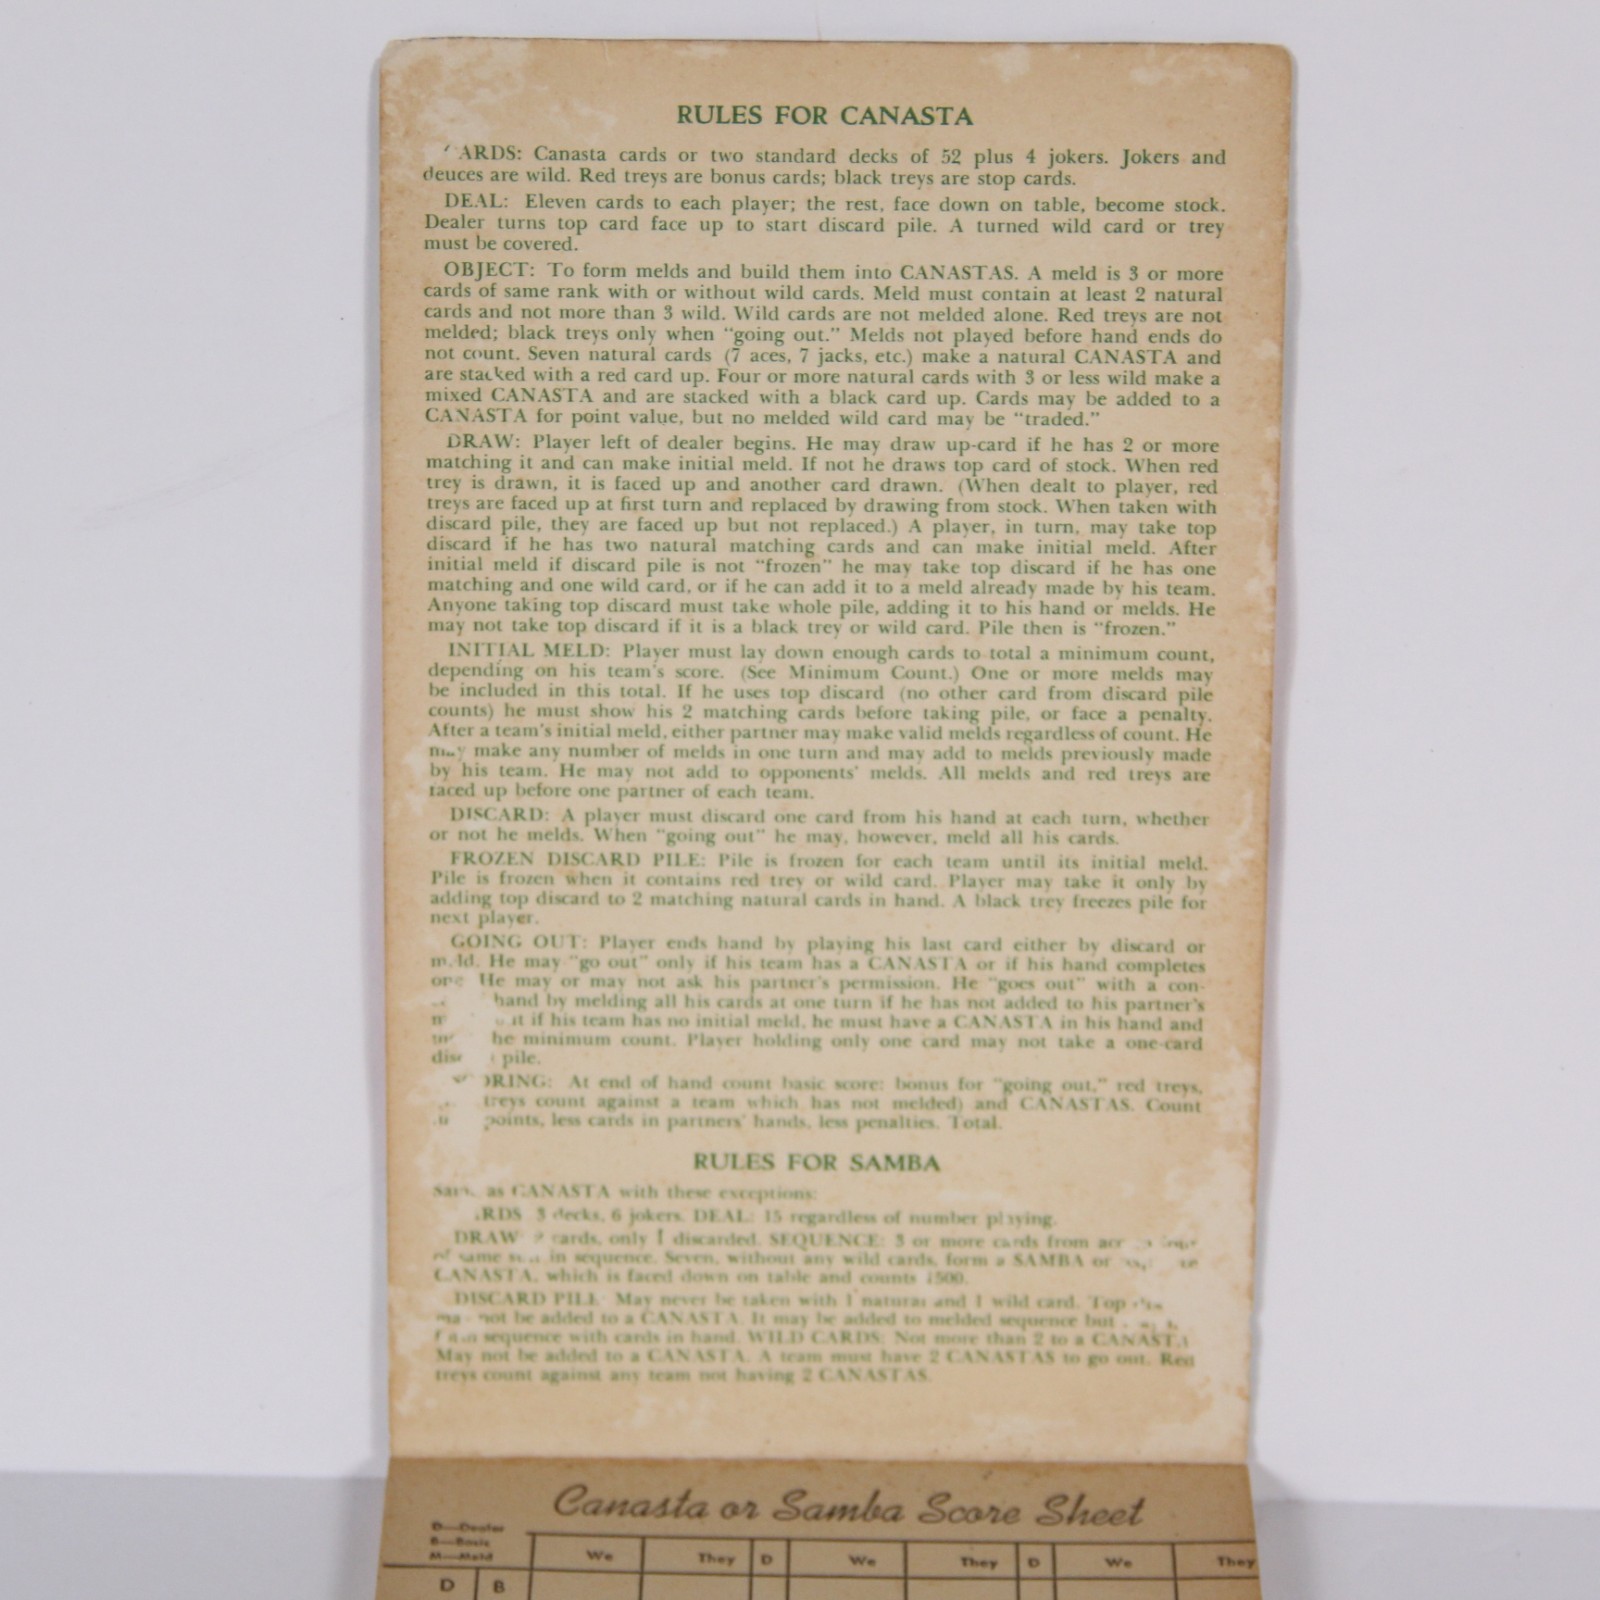 RULES FOR CANASTA
ARDS: Canasta cards or two standard decks of 52 plus 4 jokers. Jokers and
deuces are wild. Red treys are bonus cards; black treys are stop cards.
DEAL: Eleven cards to each player; the rest, face down on table, become stock.
Dealer turns top card face up to start discard pile. A turned wild card or trey
must be covered.
OBJECT: To form melds and build them into CANASTAS. A meld is 3 or more
cards of same rank with or without wild cards. Meld must contain at least 2 natural
cards and not more than 3 wild. Wild cards are not melded alone. Red treys are not
melded; black treys only when "going out." Melds not played before hand ends do
not count. Seven natural cards (7 aces, 7 jacks, etc.) make a natural CANASTA and
are stacked with a red card up. Four or more natural cards with 3 or less wild make a
mixed CANASTA and are stacked with a black card up. Cards may be added to a
CANASTA for point value, but no melded wild card may be "traded."
DRAW: Player left of dealer begins. He may draw up-card if he has 2 or more
matching it and can make initial meld. If not he draws top card of stock. When red
trey is drawn, it is faced up and another card drawn. (When dealt to player, red
treys are faced up at first turn and replaced by drawing from stock. When taken with
discard pile, they are faced up but not replaced.) A player, in turn, may take top
discard if he has two natural matching cards and can make initial meld. After
initial meld if discard pile is not "frozen" he may take top discard if he has one
matching and one wild card, or if he can add it to a meld already made by his team.
Anyone taking top discard must take whole pile, adding it to his hand or melds. He
may not take top discard if it is a black trey or wild card. Pile then is "frozen."
INITIAL MELD: Player must lay down enough cards to total a minimum count,
depending on his team's score. (See Minimum Count.) One or more melds may
be included in this total. If he uses top discard (no other card from discard pile
counts) he must show his 2 matching cards before taking pile, or face a penalty.
After a team's initial meld, either partner may make valid melds regardless of count. He
may make any number of melds in one turn and may add to melds previously made
by his team. He may not add to opponents' melds. All melds and red treys are
faced up before one partner of each team.
DISCARD: A player must discard one card from his hand at each turn, whether
or not he melds. When "going out" he may, however, meld all his cards.
FROZEN DISCARD PILE: Pile is frozen for each team until its initial meld.
Pile is frozen when it contains red trey or wild card. Player may take it only by
adding top discard to 2 matching natural cards in hand. A black trey freezes pile for
next player.
GOING OUT: Player ends hand by playing his last card either by discard or
meld. He may "go out" only if his team has a CANASTA or if his hand completes
one He may or may not ask his partner's permission. He "goes out" with a con-
hand by melding all his cards at one turn if he has not added to his partner's
it if his team has no initial meld, he must have a CANASTA in his hand and
he minimum count. Player holding only one card may not take a one-card
pile.
ORING: At end of hand count basic score: bonus for "going out," red treys,
treys count against a team which has not melded) and CANASTAS. Count
points, less cards in partners' hands, less penalties. Total.
RULES FOR SAMBA
Same as CANASTA with these exceptions:
ARDS 3 decks, 6 jokers. DEAL: 15 regardless of number playing.
DRAW 2 cards, only 1 discarded. SEQUENCE: 3 or more cards from
of same in sequence. Seven, without any wild cards, form a SAMBA or
CANASTA, which is faced down on table and counts 1500.
DISCARD PILE May never be taken with 1 natural and 1 wild card. Top
may not be added to a CANASTA. It may be added to melded sequence but
sequence with cards in hand. WILD CARDS: Not more than 2 to a CANASTA
May not be added to a CANASTA. A team must have 2 CANASTAS to go out. Red
treys count against any team not having 2 CANASTAS.
Canasta or Samba Score Sheet
D—Dealer
B—Basic
M—Meld
We They D We They D We They
D B